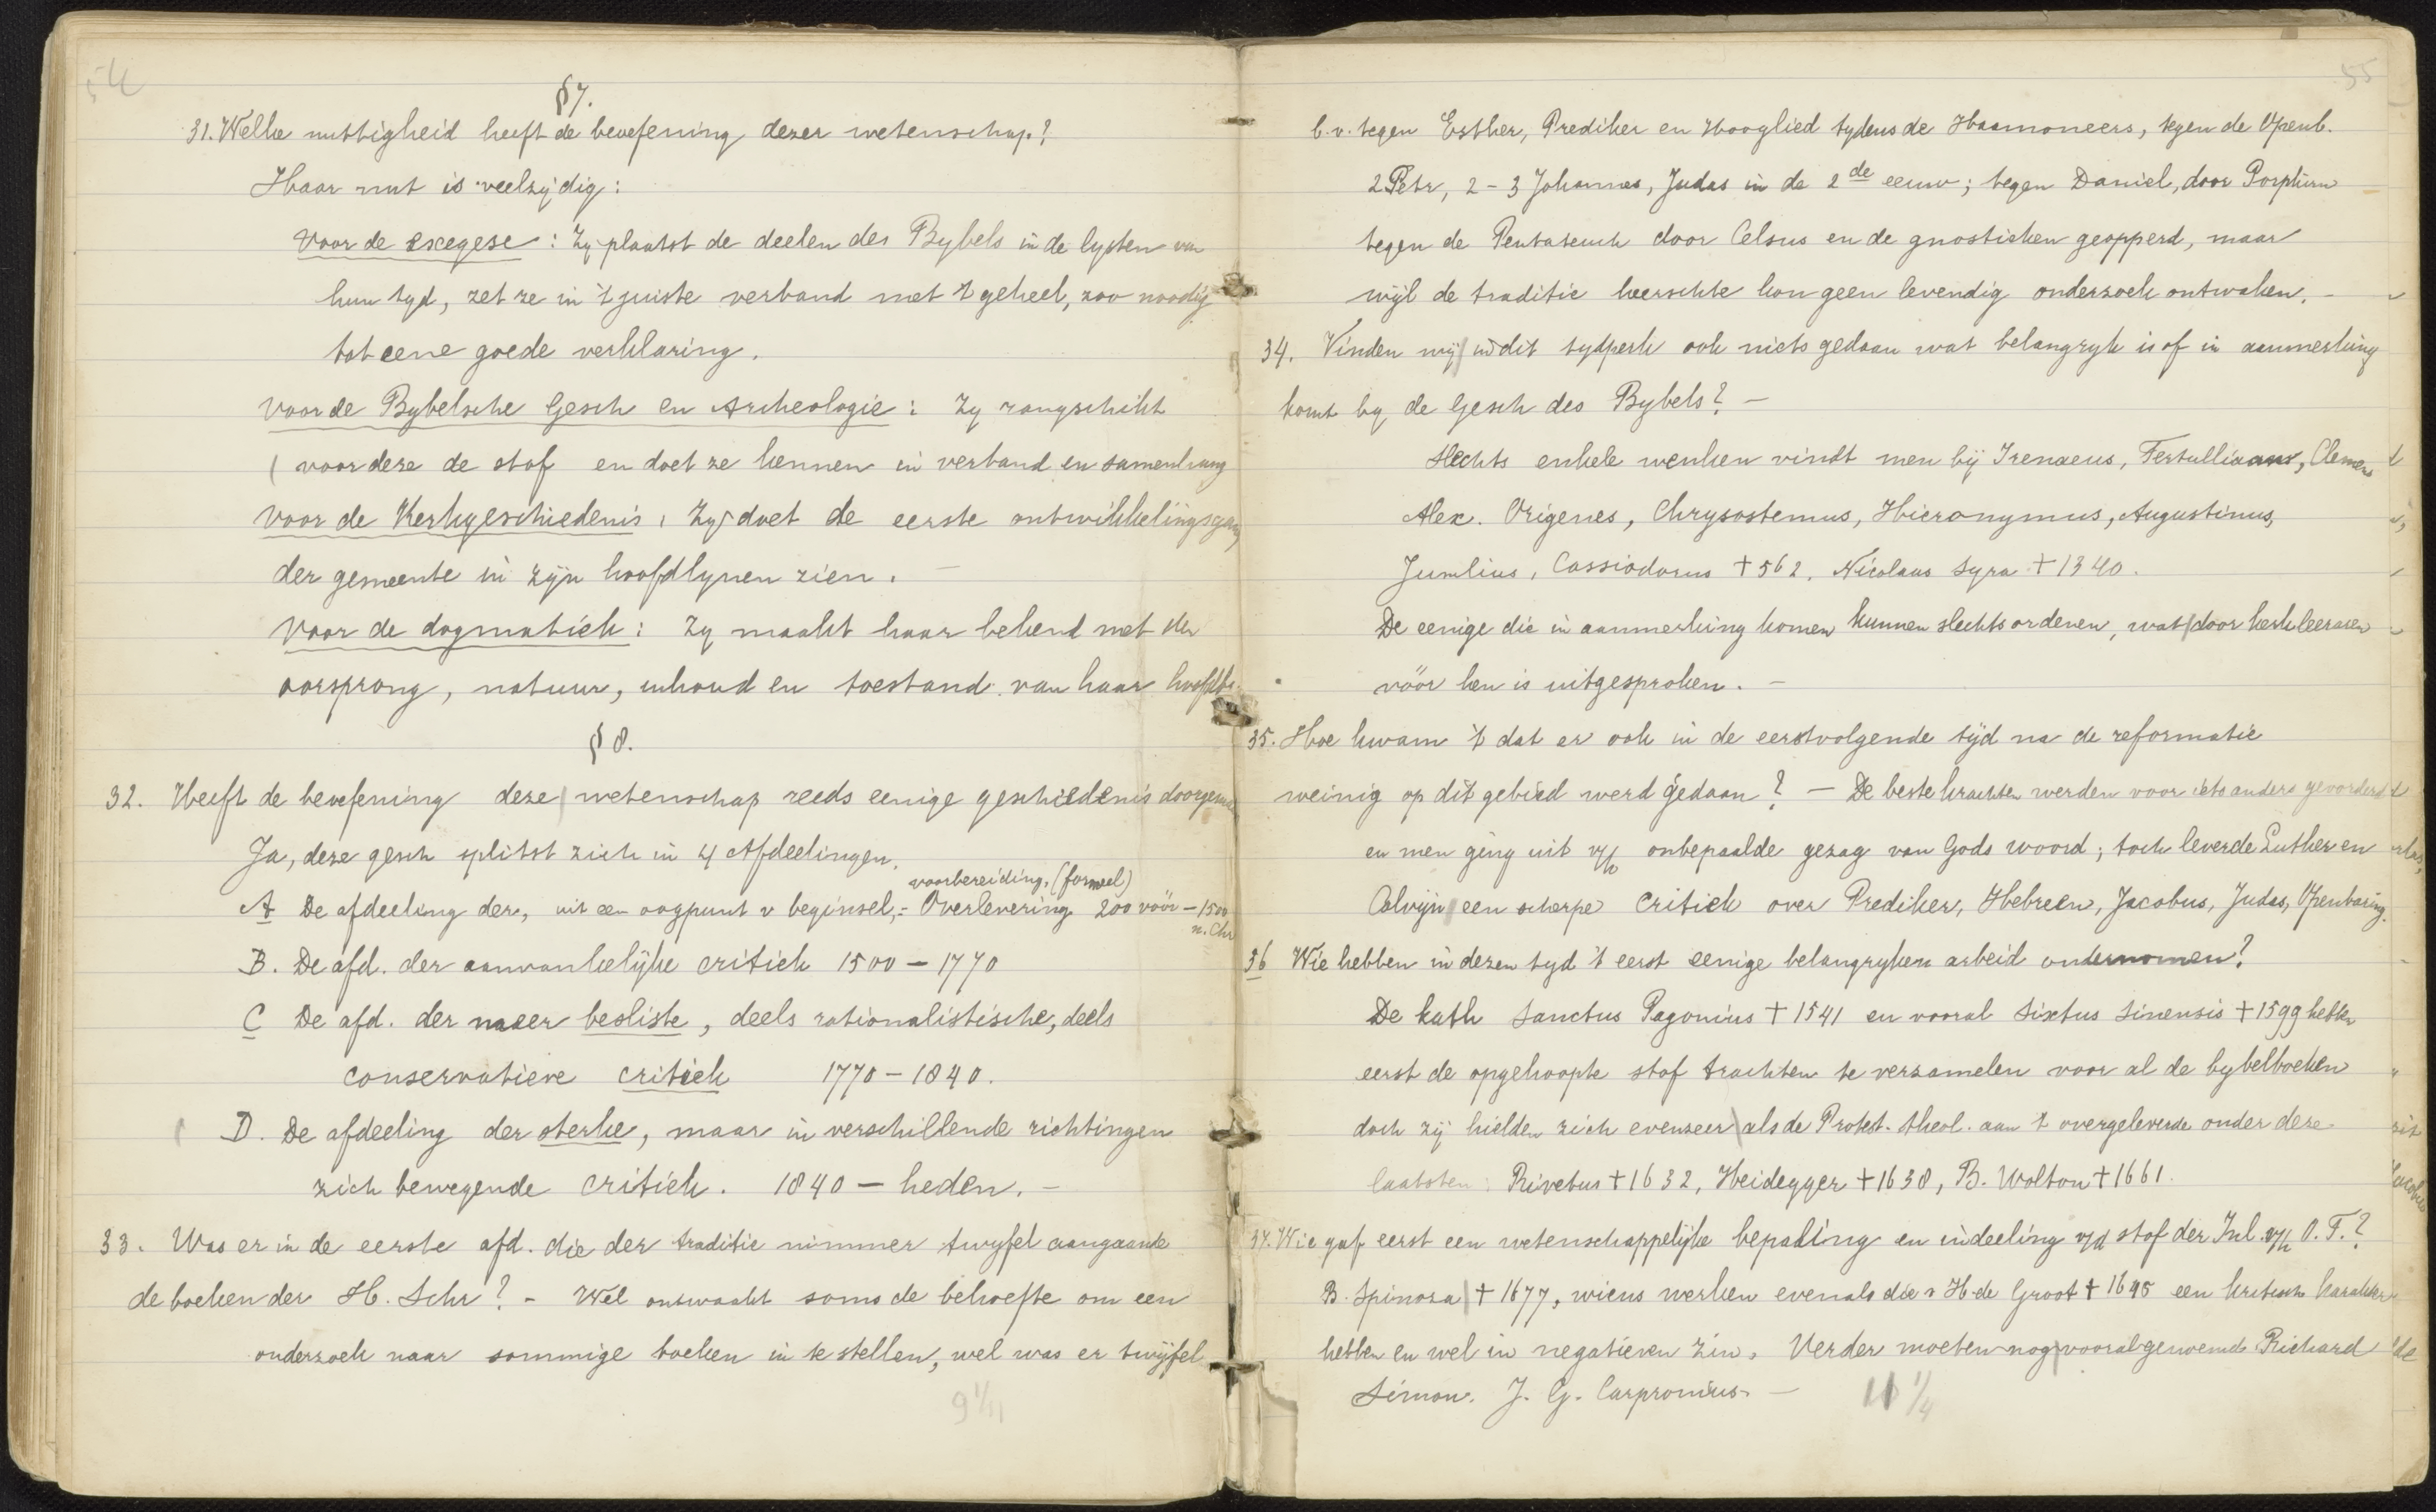 54
§7.
31. Welke nuttigheid heeft de beoefening dezer wetenschap?
Haar nut is veelzijdig:
Voor de exegese: Zy plaatst de deelen des Bybels in de lysten van
hun tyd, zet ze in 't juiste verband met 't geheel, zoo noodig
tot eene goede verklaring.
Voor de Bybelsche Gesch en Archeologie: Zy rangschikt
voor deze de stof en doet ze kennen in verband en samenhang
Voor de Kerkgeschiedenis, Zy doet de eerste ontwikkelingsgang
der gemeente in zijn hoofdlynen zien. —
Voor de dogmatiek: Zy maakt haar bekend met den
oorsprong, natuur, inhoud en toestand van haar
§ 8.
32. Heeft de beoefening deze wetenschap reeds eenige geschiedenis
Ja, deze gesch splitst zich in 4 Afdeelingen.
voorbereiding. (formeel)
A De afdeeling der, uit een oogpunt v beginsel, = Overlevering 200 vóór – 1500
n. Chr
B. De afd. der aanvankelijke critiek 1500 – 1770
C De afd. der meer besliste, deels rationalistische, deels
conservatieve critiek 1770 – 1840.
D. De afdeeling der sterke, maar in verschillende richtingen
zich bewegende critiek. 1840 – heden. –
33. Was er in de eerste afd. die der traditie nimmer twyfel aangaande
de boeken der H. Schr? – Wel ontwaakt soms de behoefte om een
onderzoek naar sommige boeken in te stellen, wel was er twijfel
9 1/11
55
b.v. tegen Esther, Prediker en Hooglied tydens de Hasmoneers, tegen de Openb.
2 Petr, 2 – 3 Johannes, Judas in de 2de eeuw; tegen Daniel, door Porphirn
tegen de Pentateuch door Celsus en de gnostieken geopperd, maar
wijl de traditie heerschte kon geen levendig onderzoek ontwaken. –
34. Vinden wij in dit tydperk ook niets gedaan wat belangryk is of in aanmerking
komt by de Gesch des Bybels? –
Slechts enkele wenken vindt men bij Irenaeus, Tertullianus, Clemens
Alex. Origenes, Chrysostemus, Hieronymus, Augustinus,
Junilius, Cassiodorus † 562, Nicolaus Lyra † 1340.
De eenige die in aanmerking komen kunnen slechts ordenen, wat door kerkleeraren
vóór hen is uitgesproken. –
35. Hoe kwam 't dat er ook in de eerstvolgende tijd na de reformatie
weinig op dit gebied werd gedaan? – De beste krachten werden voor iets anders gevorderd
en men ging uit v/h onbepaalde gezag van Gods woord; toch leverde Luther en
Calvijn een scherpe critiek over Prediker, Hebreen, Jacobus, Judas, Openbaring.
36 Wie hebben in dezen tyd 't eerst eenige belangryken arbeid ondernomen?
De kath Sanctus Pagonius † 1541 en vooral Sixtus Sinensis † 1599 hebben
eerst de opgehoopte stof trachten te verzamelen voor al de bybelboeken
doch zij hielden zich evenzeer als de Protest. theol. aan 't overgeleverde onder deze
laatsten: Rivetus † 1632, Heidegger † 1638, B. Wolton † 1661.
37. Wie gaf eerst een wetenschappelijke bepaling en indeeling v/d stof der Inl. v/h O. T.?
B. Spinoza † 1677, wiens werken evenals die v H. de Groot † 1645 een kritisch karakter
hebben en wel in negatieven zin. Verder moeten nog vooral genoemd Richard
Simon. J. G. Carpronius. –
11 1/4